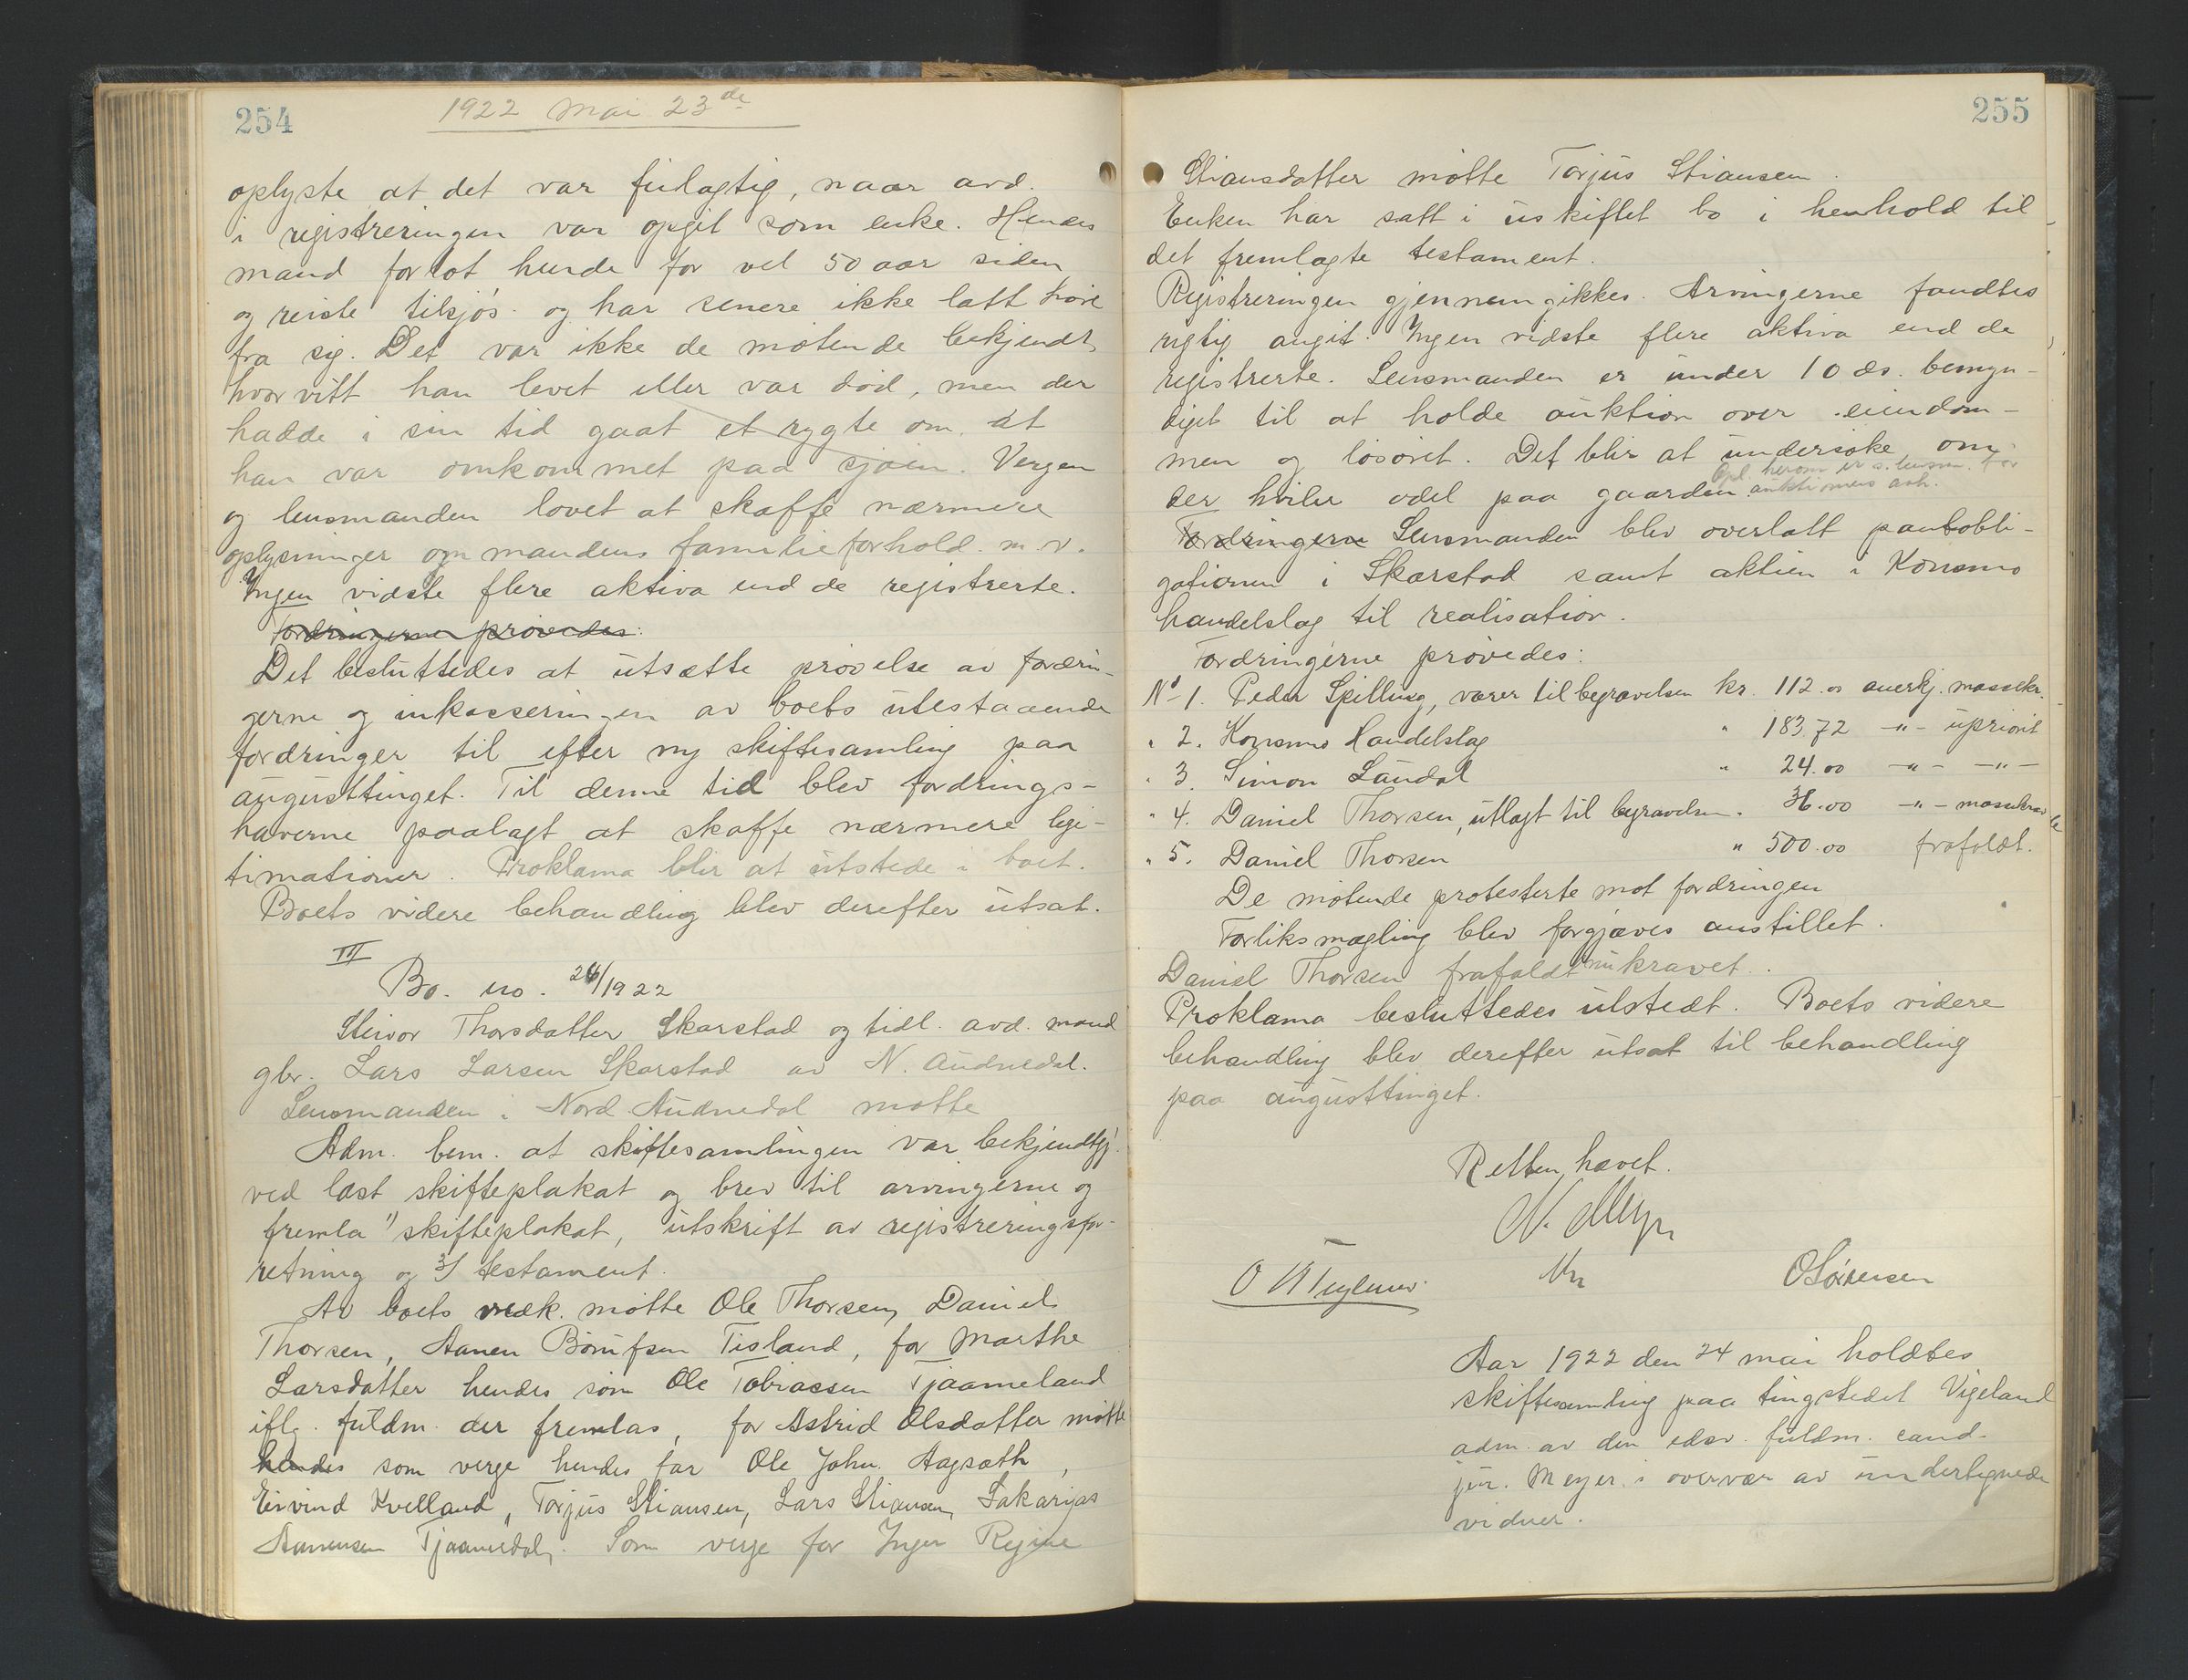 254
1922 Mai 23de
oplyste at det var feilagtig, naar avd.
i registreringen var opgit som enke. Hendes
mand forlot hende for vel 50 aar siden
og reiste tilsjös og har senere ikke latt höre
fra sig. Det var ikke de mötende bekjendt,
hvorvitt han levet eller var död, men der
hadde i sin tid gaat et rygte om at
han var omkommet paa sjöen. Vergen
og lensmanden lovet at skaffe nærmere
oplysninger om mandens familieforhold m. v.
Ingen vidste flere aktiva end de registrerte.
Fordringerne prövedes:
Det besluttedes at utsætte prövelse av fordrin-
gerne og inkasseringen av boets utestaaende
fordringer til efter ny skiftesamling paa
augusttinget. Til denne tid blev fordrings-
haverne paalagt at skaffe nærmere legi-
timationer. Proklama blir at utstede i boet.
Boets videre behandling blev derefter utsat.
III
Bo. no. 26/1922
Steivor Thorsdatter Skarstad og tidl. avd. mand
gbr. Lars Larsen Skarstad av N. Audnedal.
Lensmanden i Nord Audnedal mötte
Adm. bem. at skiftesamlingen var bekjendtgj.
ved læst skifteplakat og brev til arvingerne og
fremla 1) skifteplakat, utskrift av registreringsfor-
retning og 3) testament.
Av boets vedk. mötte Ole Thorsen, Daniel
Thorsen, Aanen Börufsen Tisland, for Marthe
Larsdatter hendes sön Ole Tobiassen Tjaameland
iflg. fuldm. der fremlas, for Astrid Olsdatter mötte
hendes som verge hendes far Ole John. Aagsæth,
Eivind Kvelland, Torjus Stiansen, Lars Stiansen, Sakarias
Aanensen Tjaamedal, Som verge for Inger Regine
255
Stiansdatter mötte Torjus Stiansen.
Enken har satt i uskiftet bo i henhold til
det fremlagte testament.
Registreringen gjennemgikkes. Arvingerne fandtes
rigtig angit. Ingen vidste flere aktiva end de
registrerte. Lensmanden er under 10 ds. bemyn-
diget til at holde auktion over eiendom-
men og lösöret. Det blir at undersöke om
Opl. herom er s. lensm. för
der hviler odel paa gaarden. auktionens avh.
Fordringerne Lensmanden blev overlatt pantobli-
gationen i Skarstad samt aktien i Konsmo
handelslag til realisation.
Fordringerne prövedes:
No 1. Peder Spilling, varer til begravelsen kr. 112.00 anerkj. massekr.
" 2. Konsmo Handelslag " 183.72 -"- upriorit
" 3. Simon Laudal " 24.00 -"- -"-
" 4. Daniel Thorsen, utlagt til begravelsen " 36.00 -"- massekrav
" 5. Daniel Thorsen " 500.00 frafaldt.
De mötende protesterte mot fordringen
Forliksmægling blev forgjæves anstillet.
Daniel Thorsen frafaldt nu kravet.
Proklama besluttedes utstedt. Boets videre
behandling blev derefter utsat til behandling
paa augusttinget.
Retten hævet.
N. Meyer
O Sörensen
Aar 1922 den 24 mai holdtes
skiftesamling paa tingstedet Vigeland
adm. av den edsv. fuldm. cand.
jur. Meyer i overvær av undertegnede
vidner.